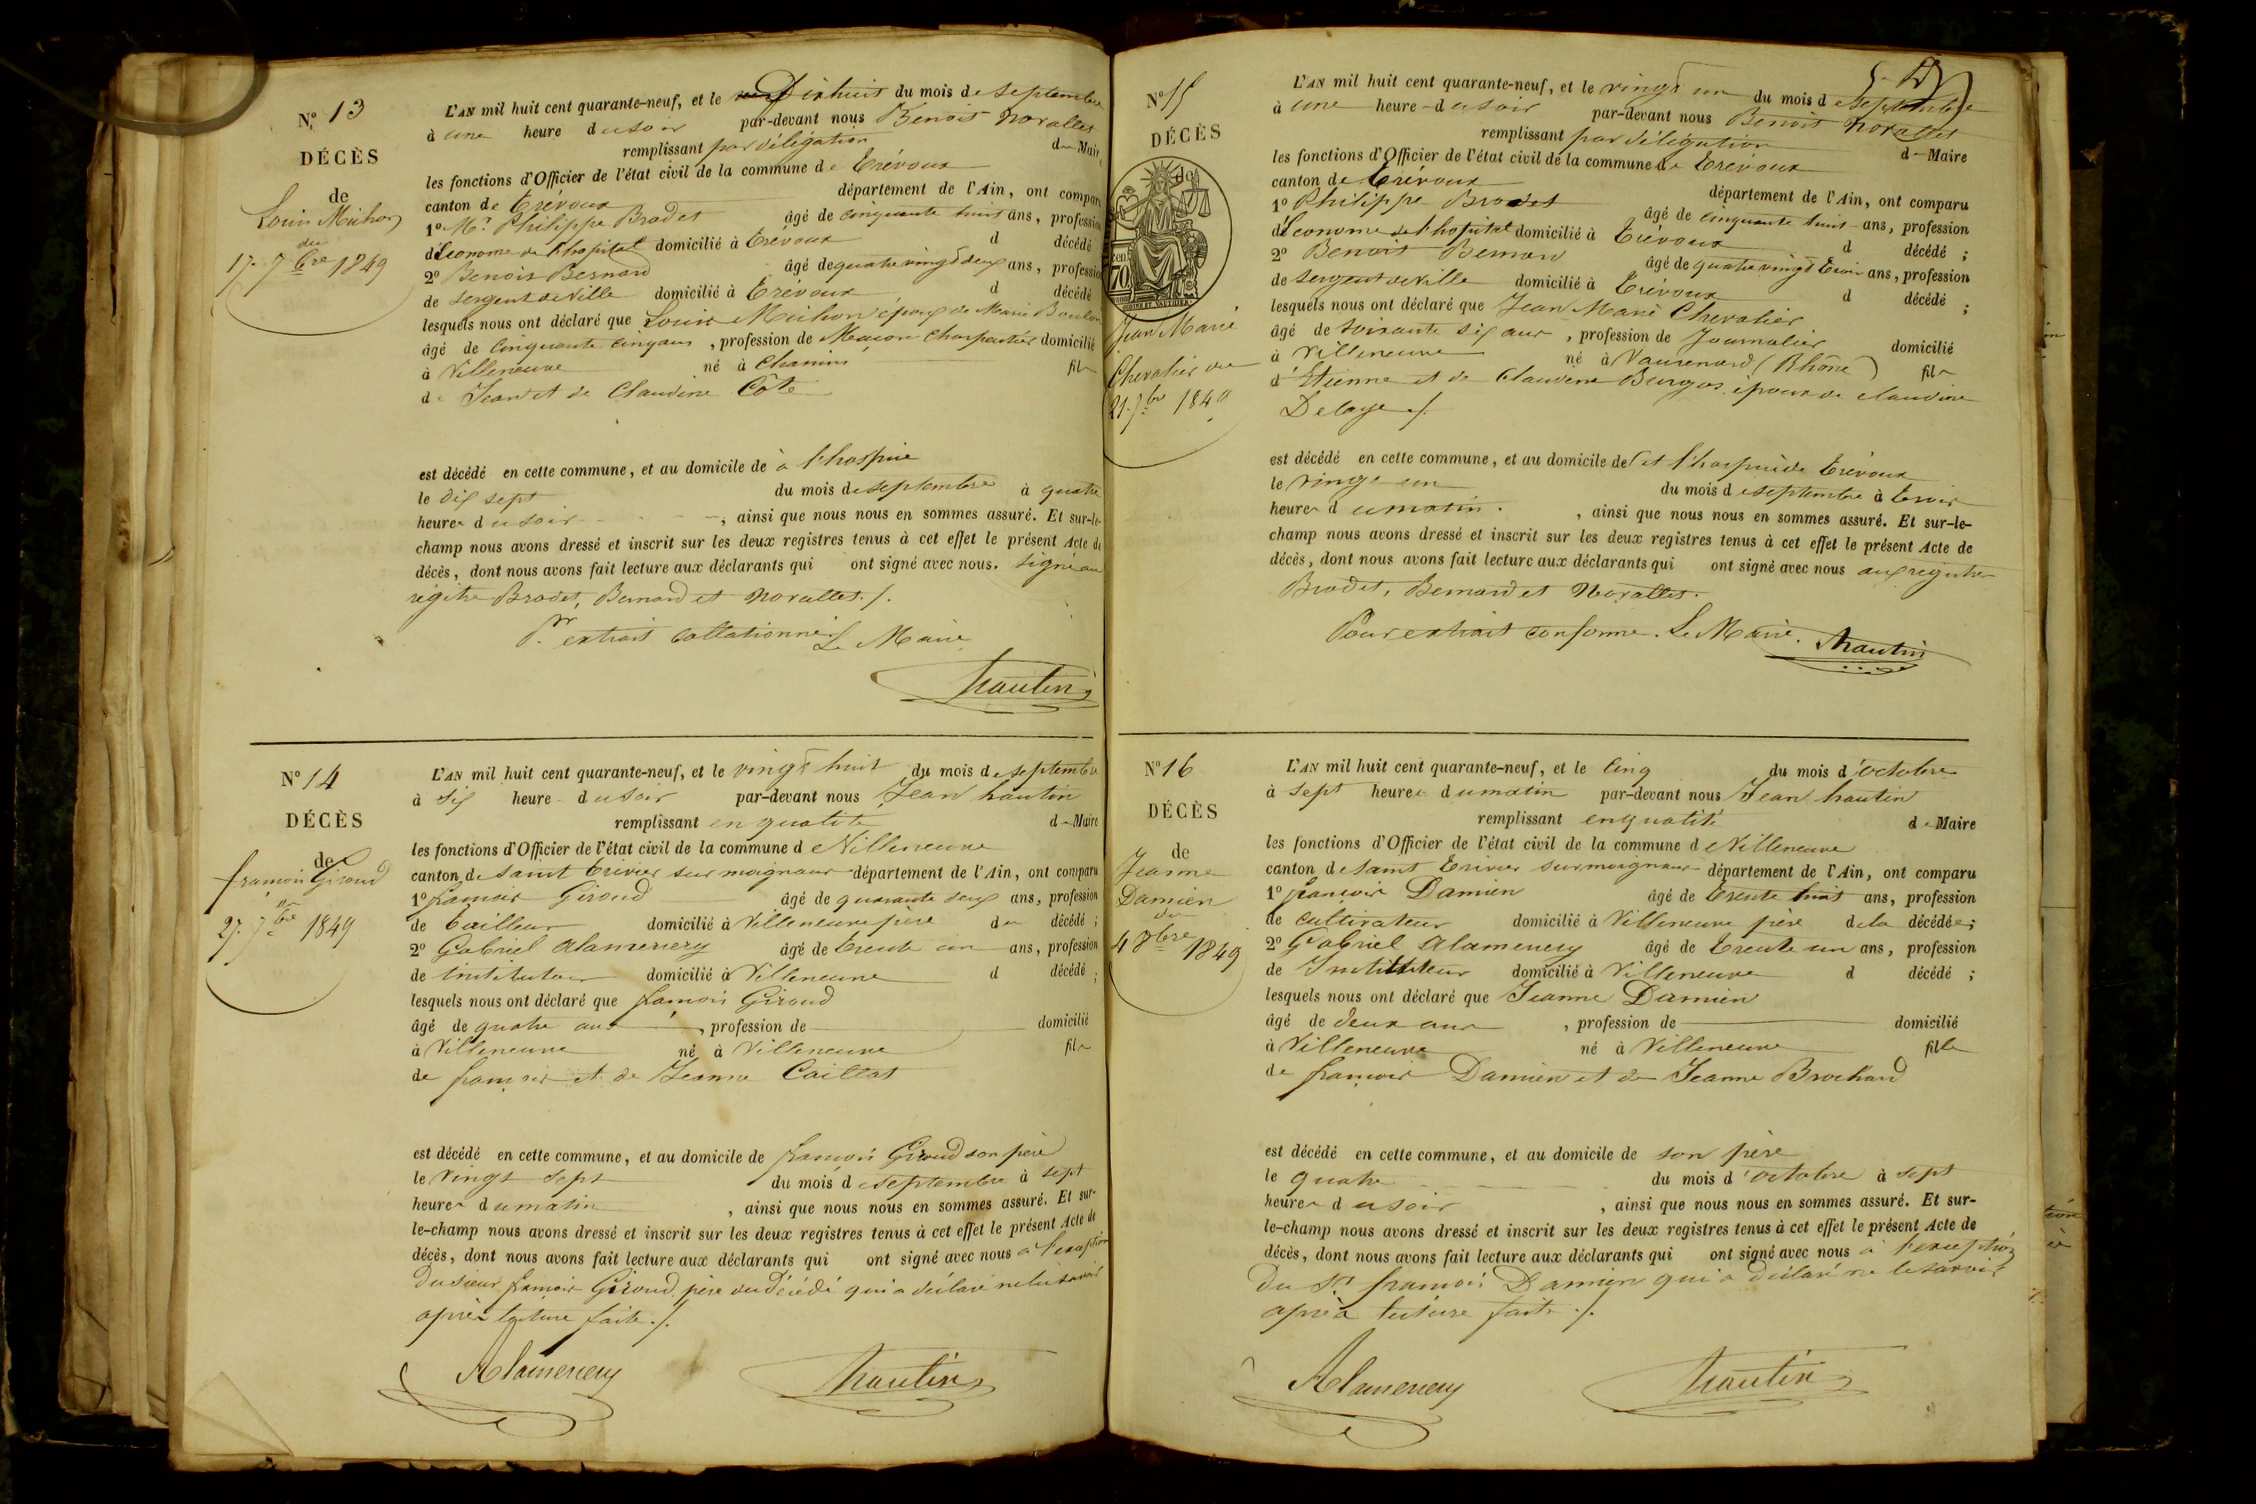 N° 13
DÉCÈS
de
Louis Michon
du
17. 7bre 1849
L'AN mil huit cent quarante-neuf, et le Dixhuit du mois de septembre
à une heure du soir par-devant nous Benoit Noraller
remplissant par délégation d Maire
les fonctions d'Officier de l'état civil de la commune de Trévoux
canton de Trévoux département de l'Ain, ont comparu
1° Mr Philippe Brodet âgé de cinquante huit ans, profession
d'Econome de l'hopital domicilié à Trévoux d décédé
2° Benoit Bernard âgé de quatre vingt deux ans, profession
de sergent de ville domicilié à Trévoux d décédé
lesquels nous ont déclaré que Louis Michon époux de Marie
âgé de Cinquante cinq ans, profession de Maçon Charpentier domicilié
à Villeneuve né à fils
de Jean et de Claudine Côte
est décédé en cette commune, et au domicile de à l'hospice
le dix sept du mois de septembre à quatre
heures du soir, ainsi que nous nous en sommes assuré. Et sur-le-
champ nous avons dressé et inscrit sur les deux registres tenus à cet effet le présent Acte de
décès, dont nous avons fait lecture aux déclarants qui ont signé avec nous. signé au
régitre Brodet, Bernard et Noraller./.
Pr. extrait Collationné Le Maire
hautin
N° 14
DÉCÈS
de
françois Giroud
27. 7bre 1849
L'AN mil huit cent quarante-neuf, et le vingt huit du mois de septembre
à six heure du soir par-devant nous Jean hautin
remplissant en qualité de Maire
les fonctions d'Officier de l'état civil de la commune de Villeneuve
canton de saint trivier sur moignans département de l'Ain, ont comparu
1° françois Giroud âgé de quarante deux ans, profession
de tailleur domicilié à Villeneuve père du décédé ;
2° Gabriel Alamercery âgé de trente un ans, profession
de Instituteur domicilié à Villeneuve d décédé ;
lesquels nous ont déclaré que françois Giroud
âgé de quatre ans, profession de domicilié
à Villeneuve né à Villeneuve fils
de françois et de Jeanne Caillat
est décédé en cette commune, et au domicile de françois Giroud son père
le vingt sept du mois de septembre à sept
heures du matin, ainsi que nous nous en sommes assuré. Et sur-
le-champ nous avons dressé et inscrit sur les deux registres tenus à cet effet le présent Acte de
décès, dont nous avons fait lecture aux déclarants qui ont signé avec nous à l'exception
du sieur françois Giroud père du décédé qui a déclaré ne le savoir
après lecture faite./.
Alamercery hautin
N° 15
DÉCÈS
de
Jean Marie
Chevalier du
21. 7bre 1849
L'AN mil huit cent quarante-neuf, et le vingt un du mois de septembre
à une heure du soir par-devant nous Benoit Noraller
remplissant par délégation d Maire
les fonctions d'Officier de l'état civil de la commune de Trévoux
canton de Trévoux département de l'Ain, ont comparu
1° Philippe Brodet âgé de cinquante huit ans, profession
d'Econome de l'hopital domicilié à Trévoux d décédé ;
2° Benoit Bernard âgé de quatre vingt trois ans, profession
de sergent de ville domicilié à Trévoux d décédé ;
lesquels nous ont déclaré que Jean Marie Chevalier
âgé de soixante six ans, profession de Journalier domicilié
à Villeneuve né à Vaurenard (Rhône) fils
d'Etienne et de Claudine Burgos époux de claudine
Delaye./.
est décédé en cette commune, et au domicile de et l'hospice de Trévoux
le vingt un du mois de septembre à trois
heures du matin., ainsi que nous nous en sommes assuré. Et sur-le-
champ nous avons dressé et inscrit sur les deux registres tenus à cet effet le présent Acte de
décès, dont nous avons fait lecture aux déclarants qui ont signé avec nous aux registres
Brodet, Bernard et Noraller.
Pour extrait conforme. Le Maire. hautin
N° 16
DÉCÈS
de
Jeanne
Damien
du
4 8bre 1849
L'AN mil huit cent quarante-neuf, et le cinq du mois d'octobre
à sept heures du matin par-devant nous Jean hautin
remplissant en qualité de Maire
les fonctions d'Officier de l'état civil de la commune de Villeneuve
canton de saint trivier sur moignans département de l'Ain, ont comparu
1° françois Damien âgé de trente huit ans, profession
de cultivateur domicilié à Villeneuve père de la décédée ;
2° Gabriel Alamercery âgé de trente un ans, profession
de Instituteur domicilié à Villeneuve d décédé ;
lesquels nous ont déclaré que Jeanne Damien
âgé de deux ans, profession de domicilié
à Villeneuve né à Villeneuve fille
de françois Damien et de Jeanne Brochard
est décédé en cette commune, et au domicile de son père
le quatre du mois d'octobre à sept
heures du soir, ainsi que nous nous en sommes assuré. Et sur-
le-champ nous avons dressé et inscrit sur les deux registres tenus à cet effet le présent Acte de
décès, dont nous avons fait lecture aux déclarants qui ont signé avec nous à l'exception
du Sr. françois Damien qui a déclaré ne le savoir
après lecture faite./.
Alamercery hautin